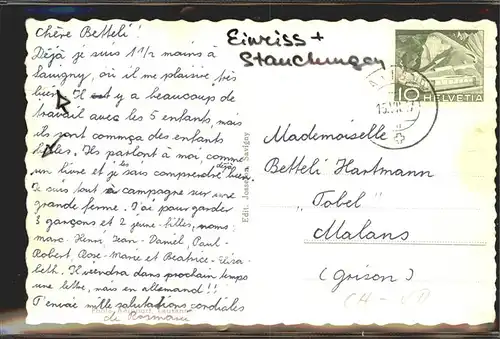 Chère Betteli!
Déjà je suis 1 1/2 mains à
Savigny, où il me plaisire très
bien. Il y a beaucoup de
travail avec les 5 enfants, mais
ils sont comme des enfants
Ils parlent à moi comme
un livre et je les sais comprendre déjà bien.
Je suis tout à campagne sur une
grande ferme. J'ai pour garder
3 garçons et 2 jeune filles, noms:
marc-Henri, Jean-Daniel, Paul-
Robert, Rose-Marie et Beatrice-Elisa-
beth. Il viendra dans prochain temps
une lettre, mais en allemand!!
T'envoie mille salutations cordiales
de Hermani
Einriss +
Stauchungen
10 HELVETIA
Edit. Josseron, Savigny
Mademoiselle
Betteli Hartmann
"Tobel"
Malans
(Grison)